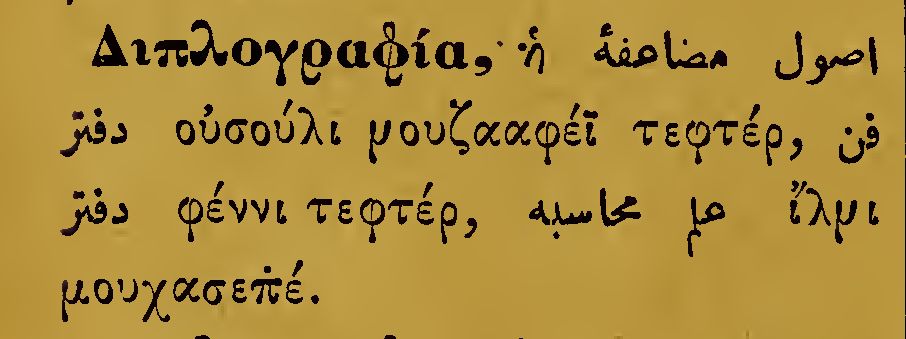 Διπλογραφία, ἡ اصول مضاعفهٔ
دفتر οὐσούλι μουζααφέϊ τεφτέρ, فن
دفتر φέννι τεφτέρ, علم محاسبه ἴλμι
μουχασεπ̇έ.